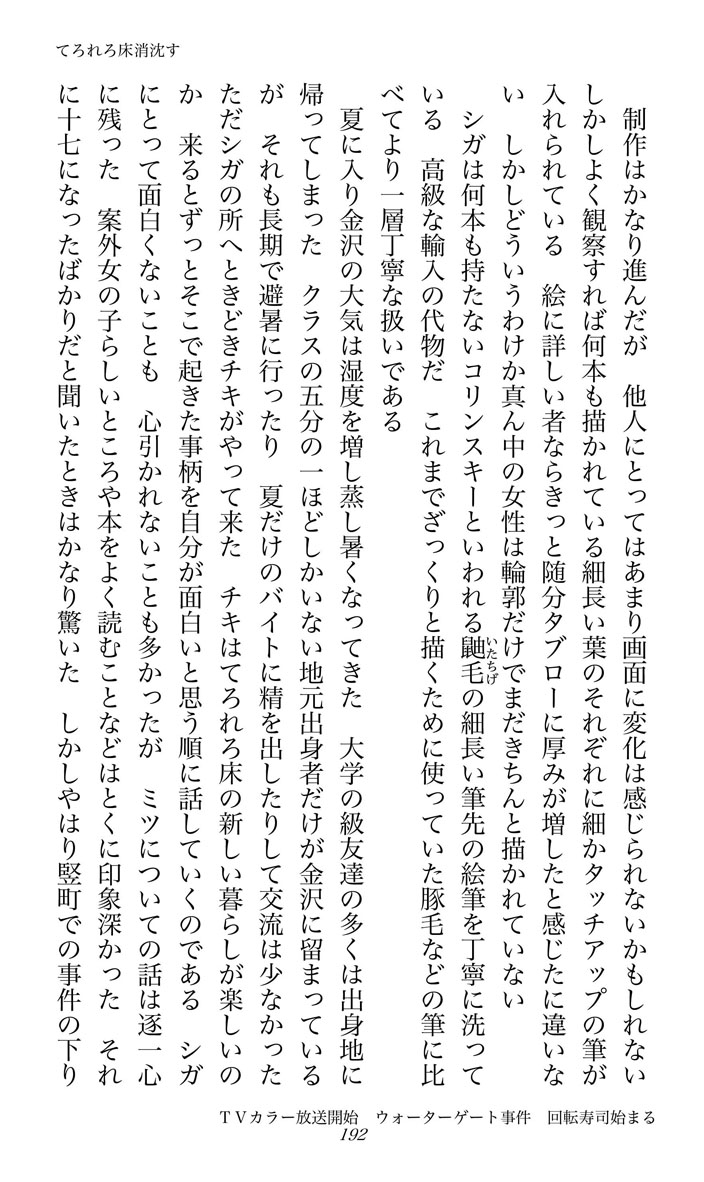 てろれろ床消沈す
　制作はかなり進んだが　他人にとってはあまり画面に変化は感じられないかもしれない
しかしよく観察すれば何本も描かれている細長い葉のそれぞれに細かタッチアップの筆が
入れられている　絵に詳しい者ならきっと随分タブローに厚みが増したと感じたに違いな
い　しかしどういうわけか真ん中の女性は輪郭だけでまだきちんと描かれていない
　シガは何本も持たないコリンスキーといわれる鼬毛いたちげの細長い筆先の絵筆を丁寧に洗って
いる　高級な輸入の代物だ　これまでざっくりと描くために使っていた豚毛などの筆に比
べてより一層丁寧な扱いである
　夏に入り金沢の大気は湿度を増し蒸し暑くなってきた　大学の級友達の多くは出身地に
帰ってしまった　クラスの五分の一ほどしかいない地元出身者だけが金沢に留まっている
が　それも長期で避暑に行ったり　夏だけのバイトに精を出したりして交流は少なかった
ただシガの所へときどきチキがやって来た　チキはてろれろ床の新しい暮らしが楽しいの
か　来るとずっとそこで起きた事柄を自分が面白いと思う順に話していくのである　シガ
にとって面白くないことも　心引かれないことも多かったが　ミツについての話は逐一心
に残った　案外女の子らしいところや本をよく読むことなどはとくに印象深かった　それ
に十七になったばかりだと聞いたときはかなり驚いた　しかしやはり竪町での事件の下り
ＴＶカラー放送開始　ウォーターゲート事件　回転寿司始まる
192